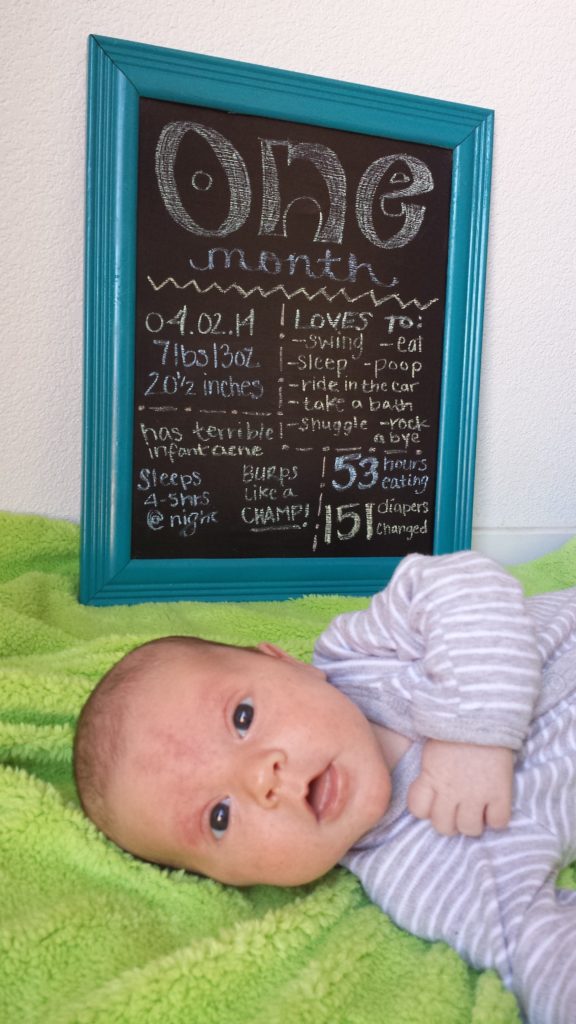 one
month
04.02.14
7lbs13oz
20½ inches
LOVES TO:
-swing -eat
-sleep -poop
-ride in the car
-take a bath
-snuggle -rock
a bye
has terrible
infant acne
Sleeps
4-5hrs
@ night
BURPS
Like a
CHAMP!
53 hours
eating
151 diapers
changed